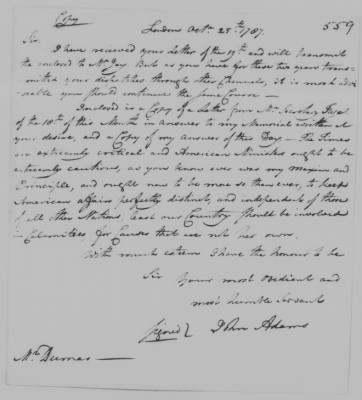 Copy
559
London Oct. 25th 1787.
Sir.
I have received your Letter of the 19th and will transmit
the enclosed to Mr Jay. But as you have for these two years trans-
mitted your dispatches through other Channels, it is most advi-
sable you should continue the same Course —
Inclosed is a Copy of a Letter from Mr
of the 18th of this Month in answer to my Memorial written at
your desire, and a Copy of my answer of this Day — The Times
are extremely critical and American Ministers ought to be
extremely cautious, as you know ever was my maxim and
Principle, and ought now to be more so than ever, to keep
American affairs perfectly distinct, and independent of those
of All other Nations, least our Country should be involved
in Calamities for Causes that are not her own.
With much esteem I have the honour to be
Sir your most obedient and
most humble Servant
Signed John Adams
Mr. Dumas —